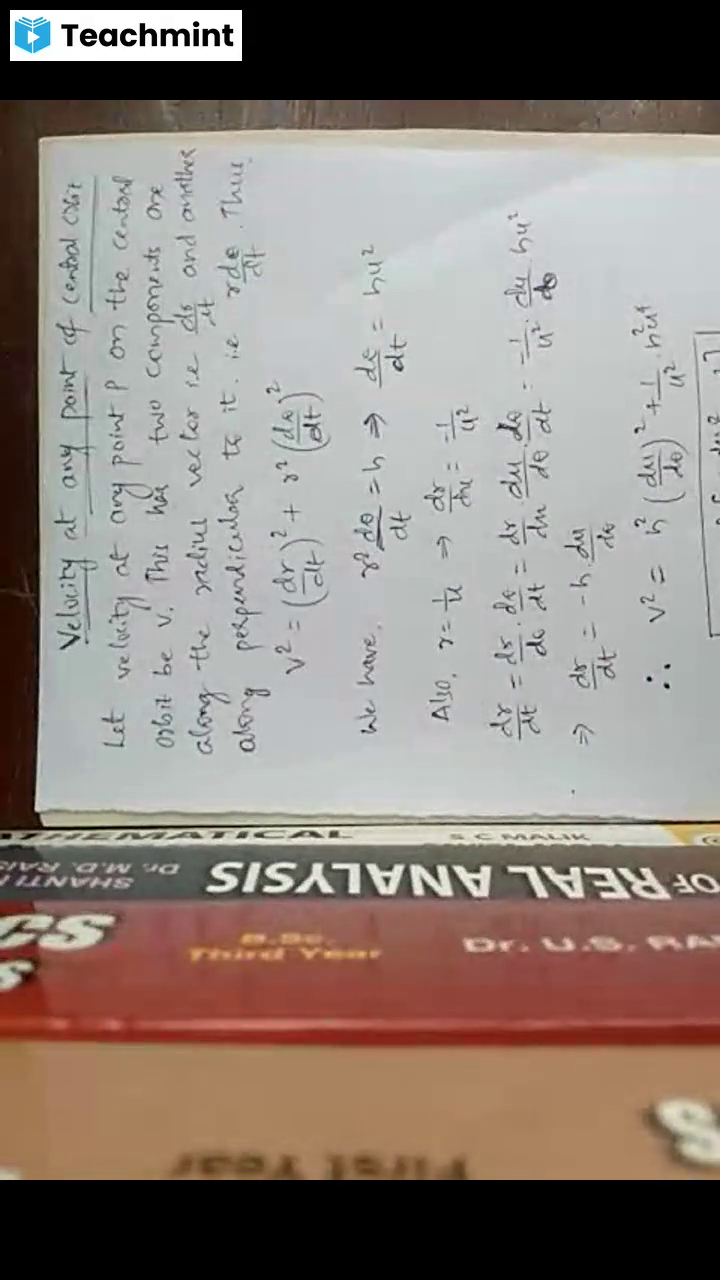 Teachmint
Velocity at any point of central orbit
Let velocity at any point P on the central
orbit be v. This has two components one
along the radius vector i.e dr/dt and another
along perpendicular to it. i.e rdθ/dt. Thus
v² = (dr/dt)² + r² (dθ/dt)²
We have, r² dθ/dt = h ⇒ dθ/dt = hu²
Also, r = 1/u ⇒ dr/du = -1/u²
dr/dt = dr/dθ · dθ/dt = dr/du · du/dθ · dθ/dt = -1/u² · du/dθ hu²
⇒ dr/dt = -h · du/dθ
∴ v² = h² (du/dθ)² + 1/u² · h²u⁴
MATHEMATICAL
S C MALIK
SHANTI
Dr. M.D. RAIS
OF REAL ANALYSIS
B.Sc.
Third Year
Dr. U.S. RA
First Year